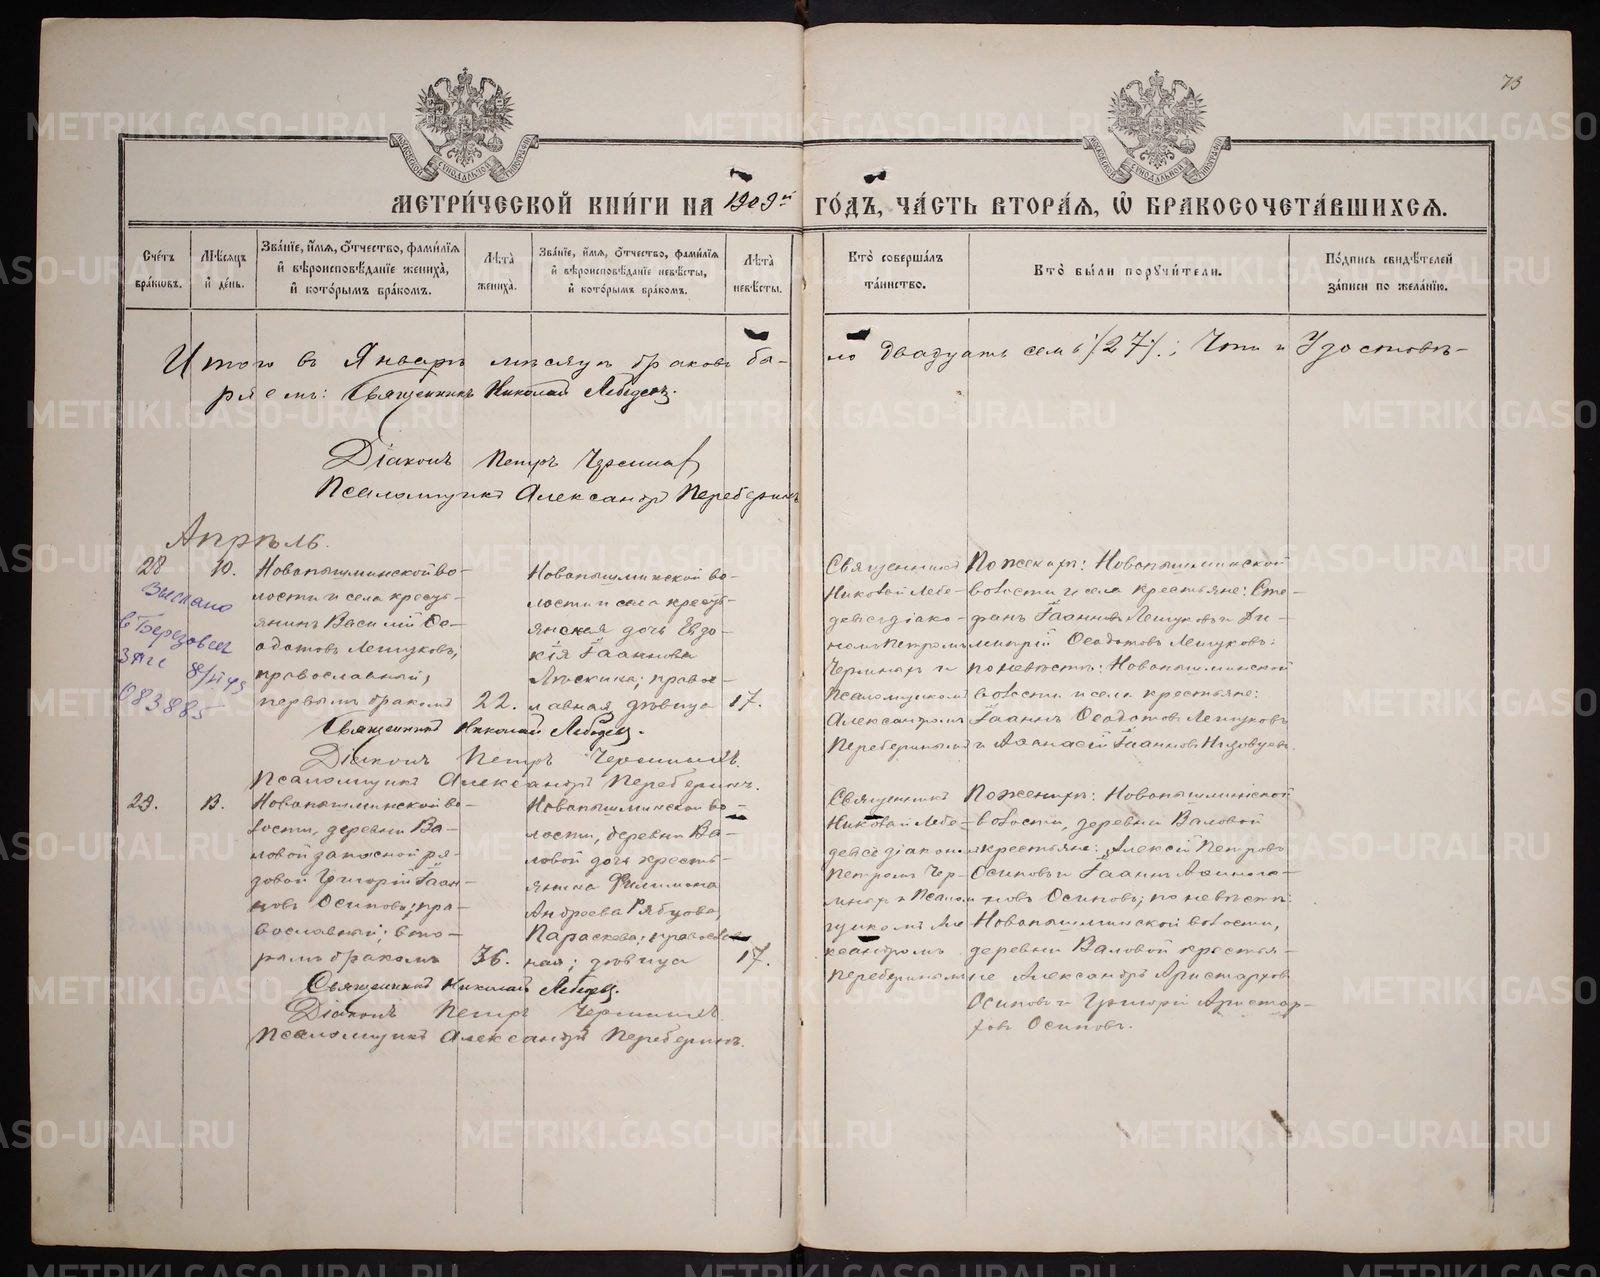 73
МЕТРИ́ЧЕСКОЙ КНИ́ГИ НА 1909й ГО́ДЪ, ЧА́СТЬ ВТОРА́Я, Ѽ БРАКОСОЧЕТА́ВШИХСЯ.
Сче́тъ бра́ковъ.
Мѣ́сяцъ и҆ де́нь.
Зва́нїе, и҆́мя, ѻ҆́тчество, фами́лїя и҆ вѣроисповѣ́данїе жениха̀, и҆ кото́рымъ бра́комъ.
Лѣ́та жениха̀.
Зва́нїе, и҆́мя, ѻ҆́тчество, фами́лїя и҆ вѣроисповѣ́данїе невѣ́сты, и҆ кото́рымъ бра́комъ.
Лѣ́та невѣ́сты.
Кто̀ соверша́лъ та́инство.
Кто̀ бы́ли порꙋчи́тели.
По́дпись свидѣ́телей за́писи по жела́нїю.
Итого въ Январѣ мѣсяцѣ браковъ бы-
ло двадцать семь /27/.; Что и Удостовѣ-
ряемъ: Священникъ Николай Лебедевъ.
Діаконъ Петръ
Псаломщикъ Александръ Переберинъ
Апрѣль.
28
10.
Новопышминской во-
лости и села кресть-
янинъ Василій Ѳе-
одотовъ Лешуковъ,
православный,
первымъ бракомъ
22.
Новопышминской во-
лости и села кресть-
янская дочь Евдо-
кія Іоаннова
правос-
лавная, дѣвица
17.
Священникъ
Николай Лебе-
девъ съ діако-
номъ Петромъ
и
Псаломщикомъ
Александромъ
Переберинымъ
По женихѣ: Новопышминской
волости и села крестьяне: Сте-
фанъ Іоанновъ Лешуковъ и Ди-
митрій Ѳеодотовъ Лешуковъ;
по невѣстѣ: Новопышминской
волости и села крестьяне:
Іоаннъ Ѳеодотовъ Лешуковъ
и Аѳанасій Іоанновъ
Выслано
в Березовск
ЗАГС
083885
Священникъ Николай Лебедевъ.
Діаконъ Петръ
Псаломщикъ Александръ Переберинъ.
29.
13.
Новопышминской во-
лости, деревни Ва-
ловой запасной ря-
довой Григорій Іоан-
новъ Осиповъ; пра-
вославный; вто-
рымъ бракомъ
36.
Новопышминской во-
лости, деревни Ва-
ловой дочь кресть-
янина Филимона
Андреева Рябцова,
Параскева; православ-
ная; дѣвица
17.
Священникъ
Николай Лебе-
девъ съ діакономъ
Петромъ Чер-
и Псалом-
щикомъ Але-
ксандромъ
Переберинымъ
По женихѣ: Новопышминской
волости, деревни Валовой
крестьяне: Алексій Петровъ
Осиповъ и Іоаннъ
новъ Осиповъ; по невѣстѣ:
Новопышминской волости,
деревни Валовой крестья-
не Александръ Аристарховъ
Осиповъ и Григорій Аристар-
ховъ Осиповъ.
Священникъ Николай Лебедевъ.
Діаконъ Петръ
Псаломщикъ Александръ Переберинъ.
METRIKI.GASO-URAL.RU